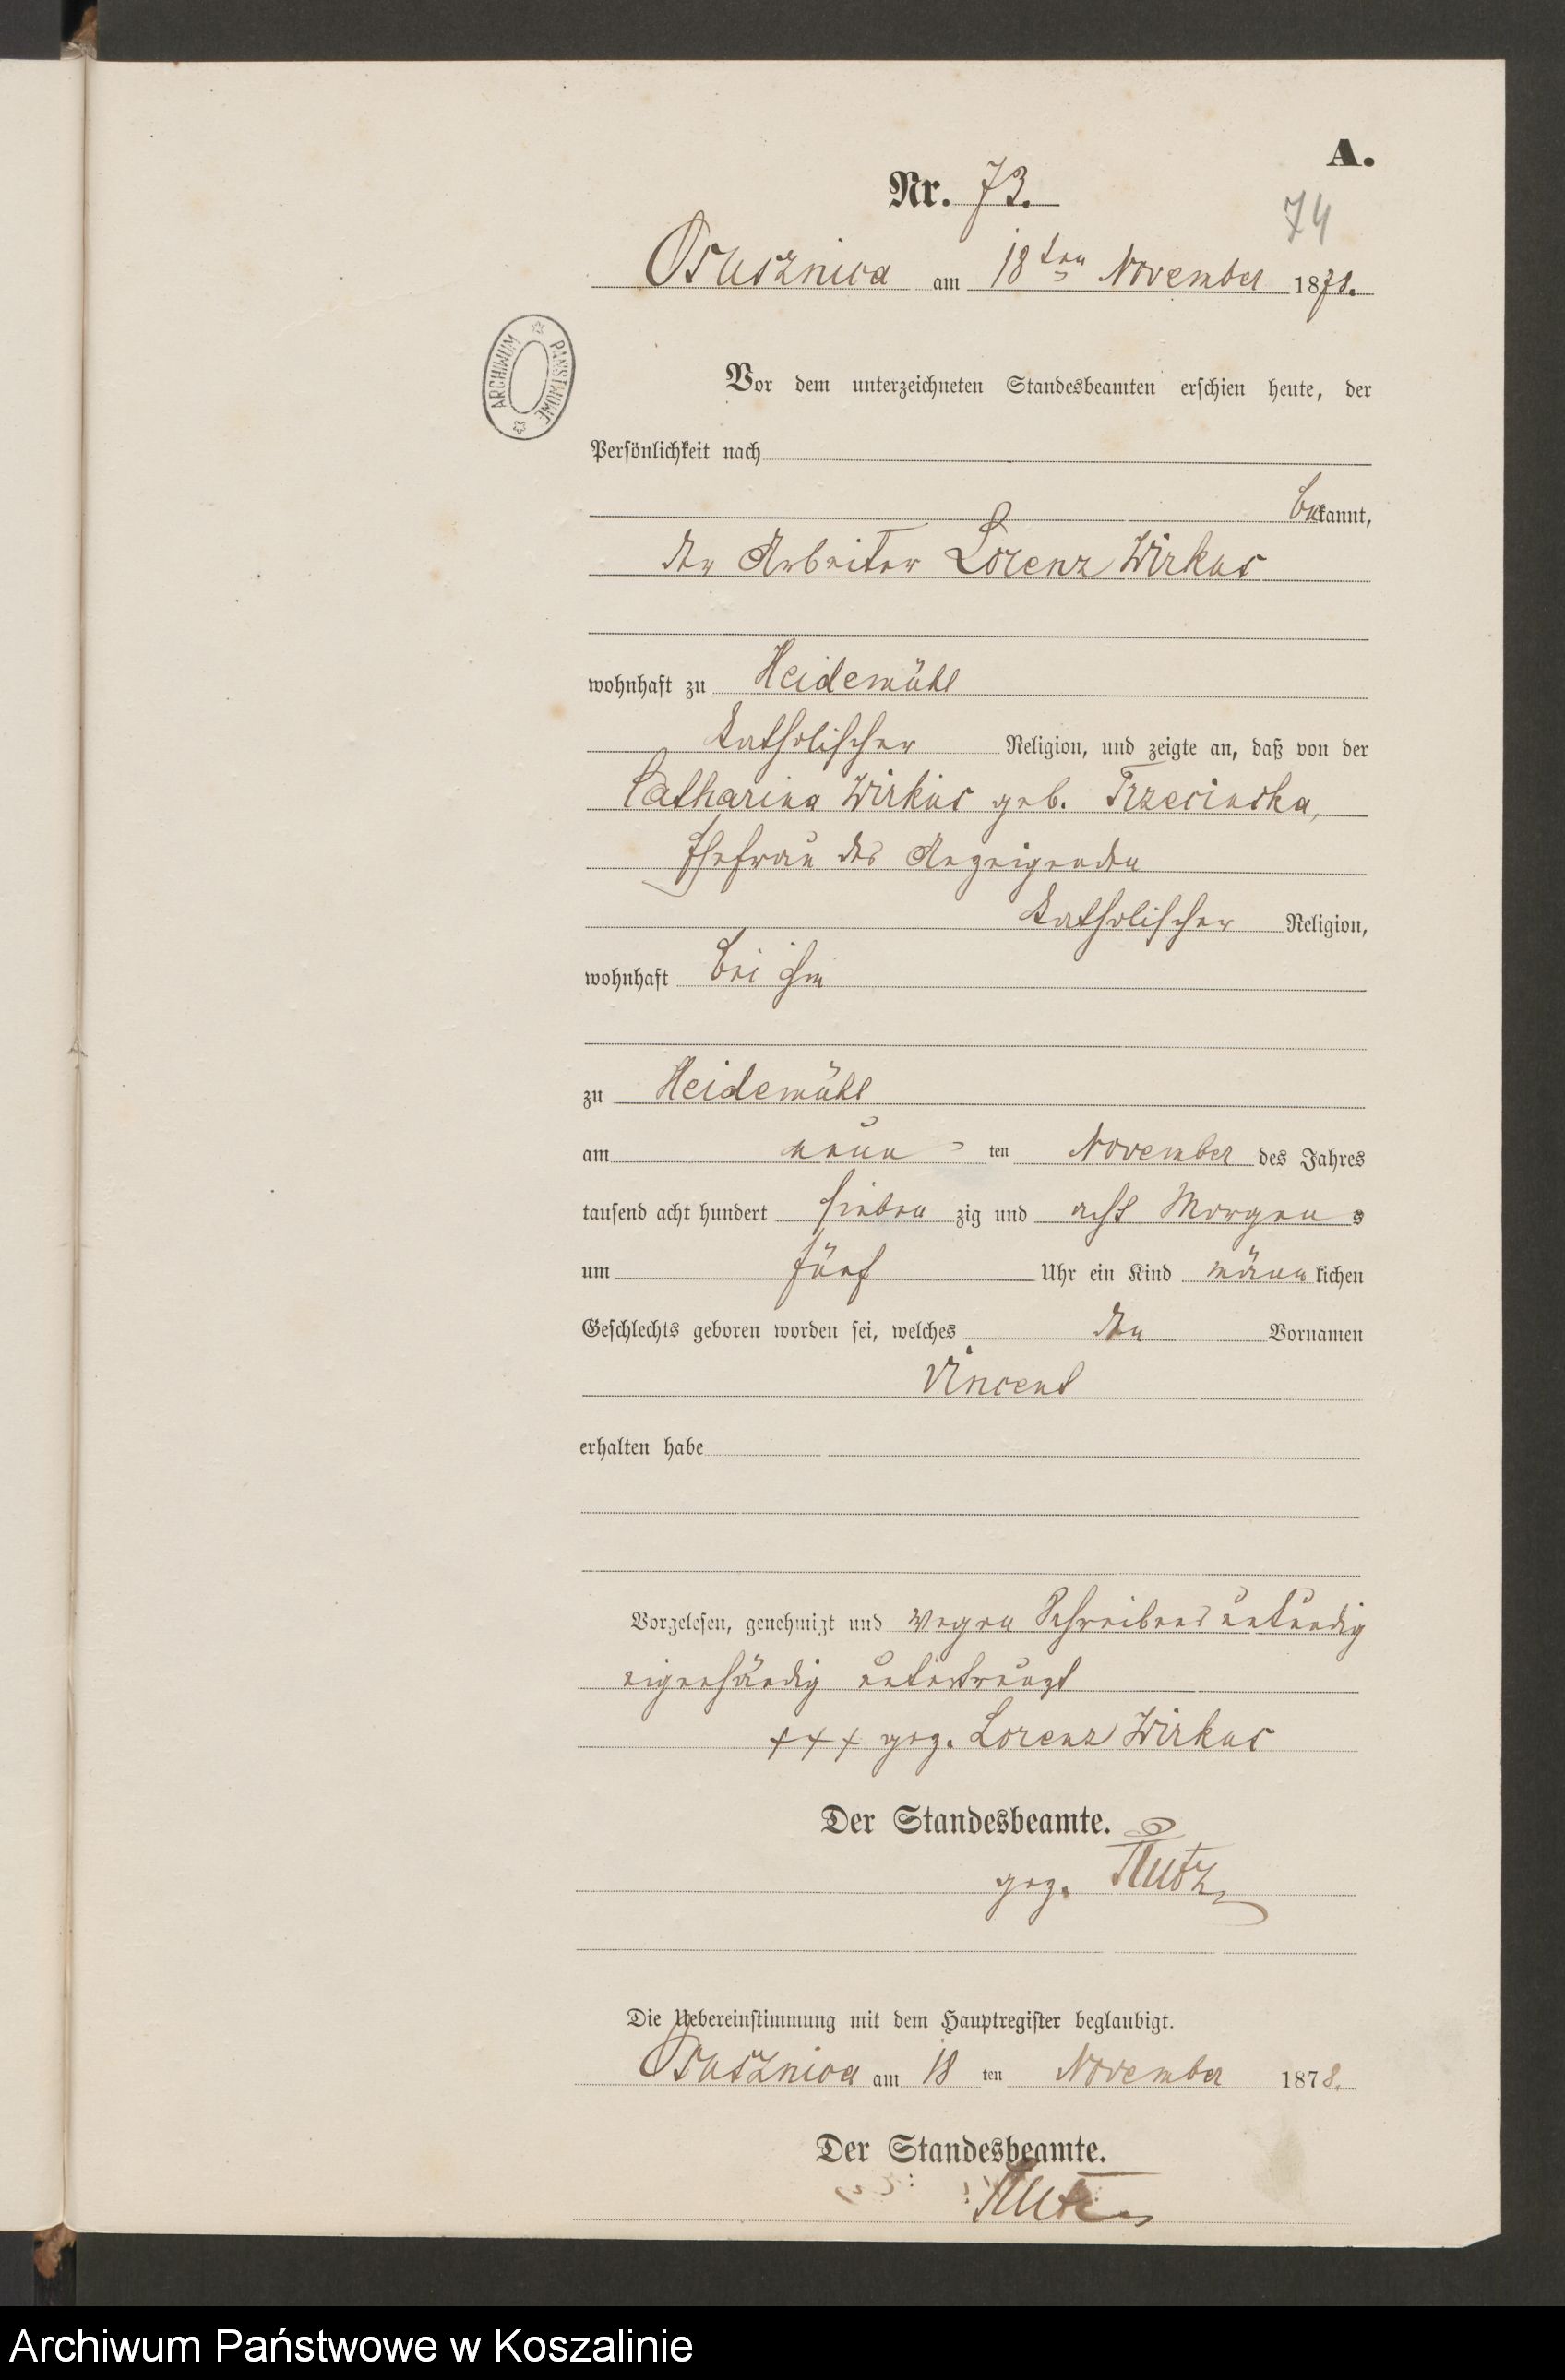 A.
Nr. 73.
74
Osusznica am 18ten November 1878.
ARCHIWUM PAŃSTWOWE
Vor dem unterzeichneten Standesbeamten erschien heute, der
Persönlichkeit nach
bekannt,
der Arbeiter Lorenz Wirkus
wohnhaft zu Heidemühl
katholischer Religion, und zeigte an, daß von der
Catharina Wirkus geb. Trzecinska,
Ehefrau des Anzeigenden
katholischer Religion,
wohnhaft bei ihm
zu Heidemühl
am neun ten November des Jahres
tausend acht hundert sieben zig und acht Morgens
um fünf Uhr ein Kind männlichen
Geschlechts geboren worden sei, welches den Vornamen
Vincent
erhalten habe
Vorgelesen, genehmigt und wegen Schreibensunkundig
eigenhändig unterkreuzt
+++ gez. Lorenz Wirkus
Der Standesbeamte.
gez.
Die Uebereinstimmung mit dem Hauptregister beglaubigt.
Osusznica am 18 ten November 1878.
Der Standesbeamte.
Archiwum Państwowe w Koszalinie